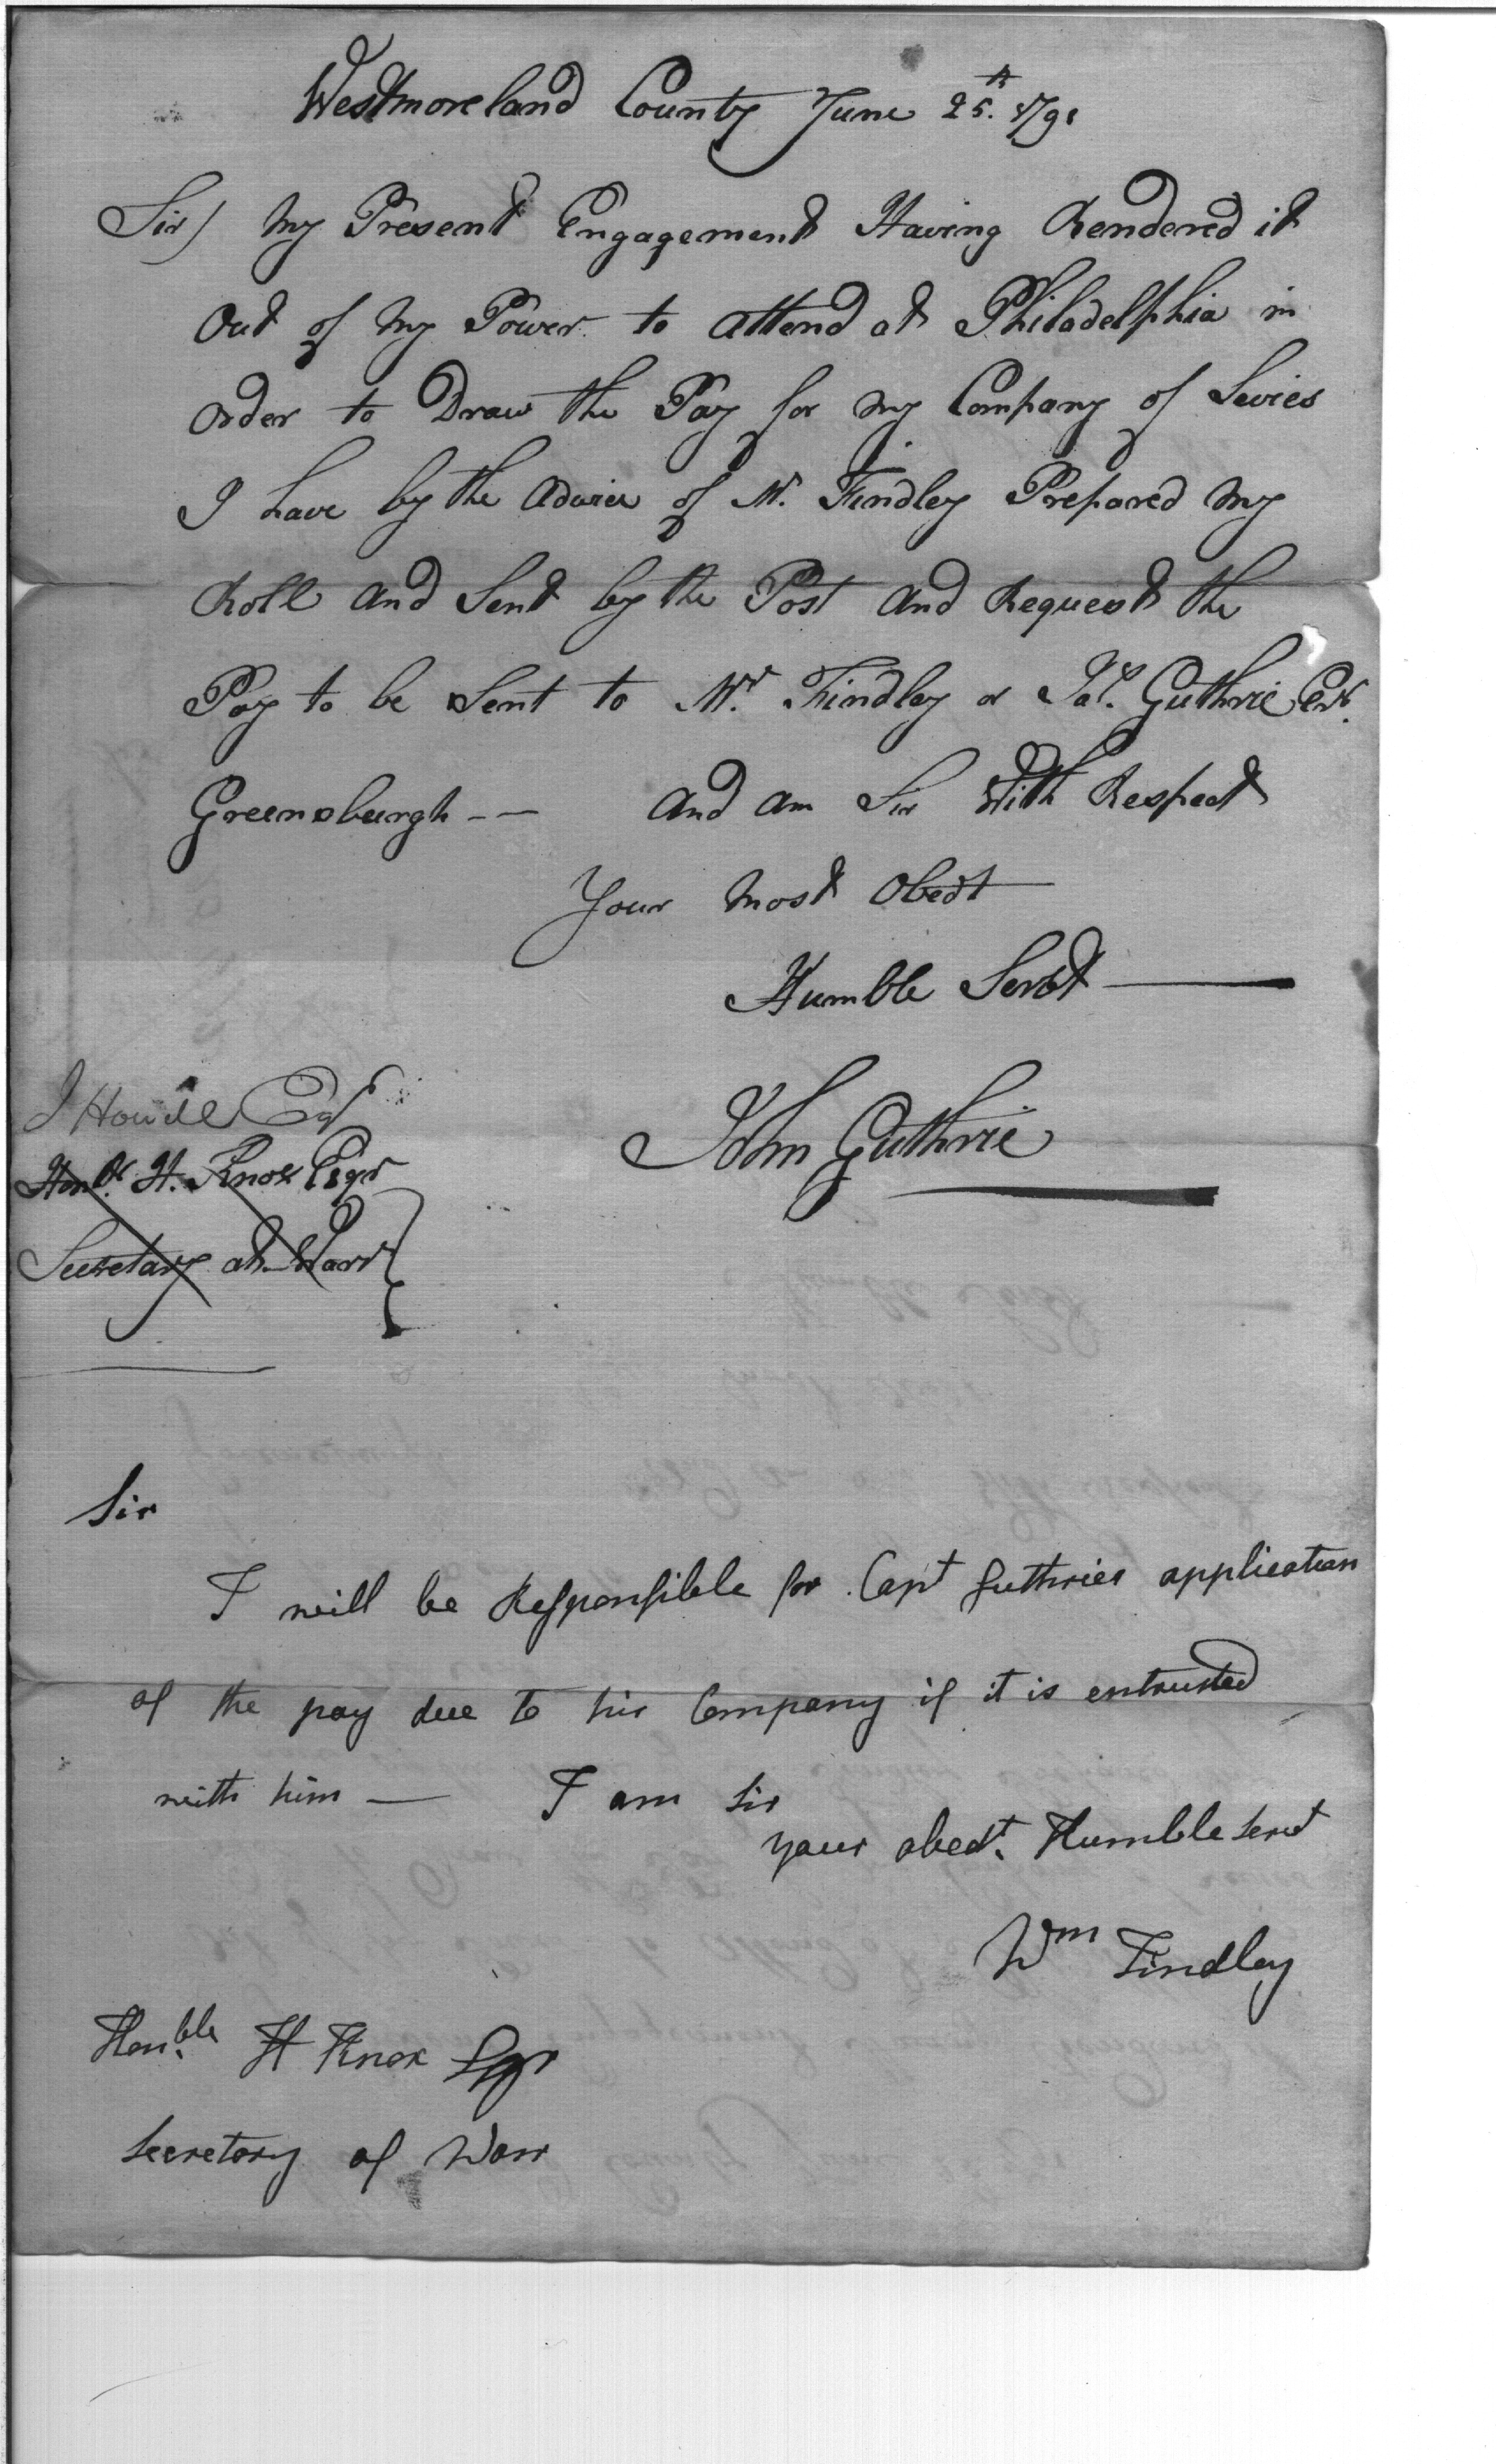 Westmoreland County June 25.th 1791
Sir) My Present Engagement Having Rendered it
Out of My Power to attend at Philadelphia in
Order to Draw the Pay for My Company of Levies
I have by the Advice of Mr. Findley Prepared My
Roll and Sent by the Post and Request the
Pay to be Sent to Mr. Findley or Guthrie Esqr.
Greensburgh -- and am Sir With Respect
Your Most Obedt
Humble Servt
John Guthrie
J Howell Esqr
Honbl. H. Knox Esqr
Secretary at Warr
Sir
I will be Responsible for Capt Guthries application
of the pay due to his Company if it is entrusted
with him — I am Sir
your obedt. Humble servt
Wm Findley
Hon.ble H Knox Esqr
Secretary of Warr